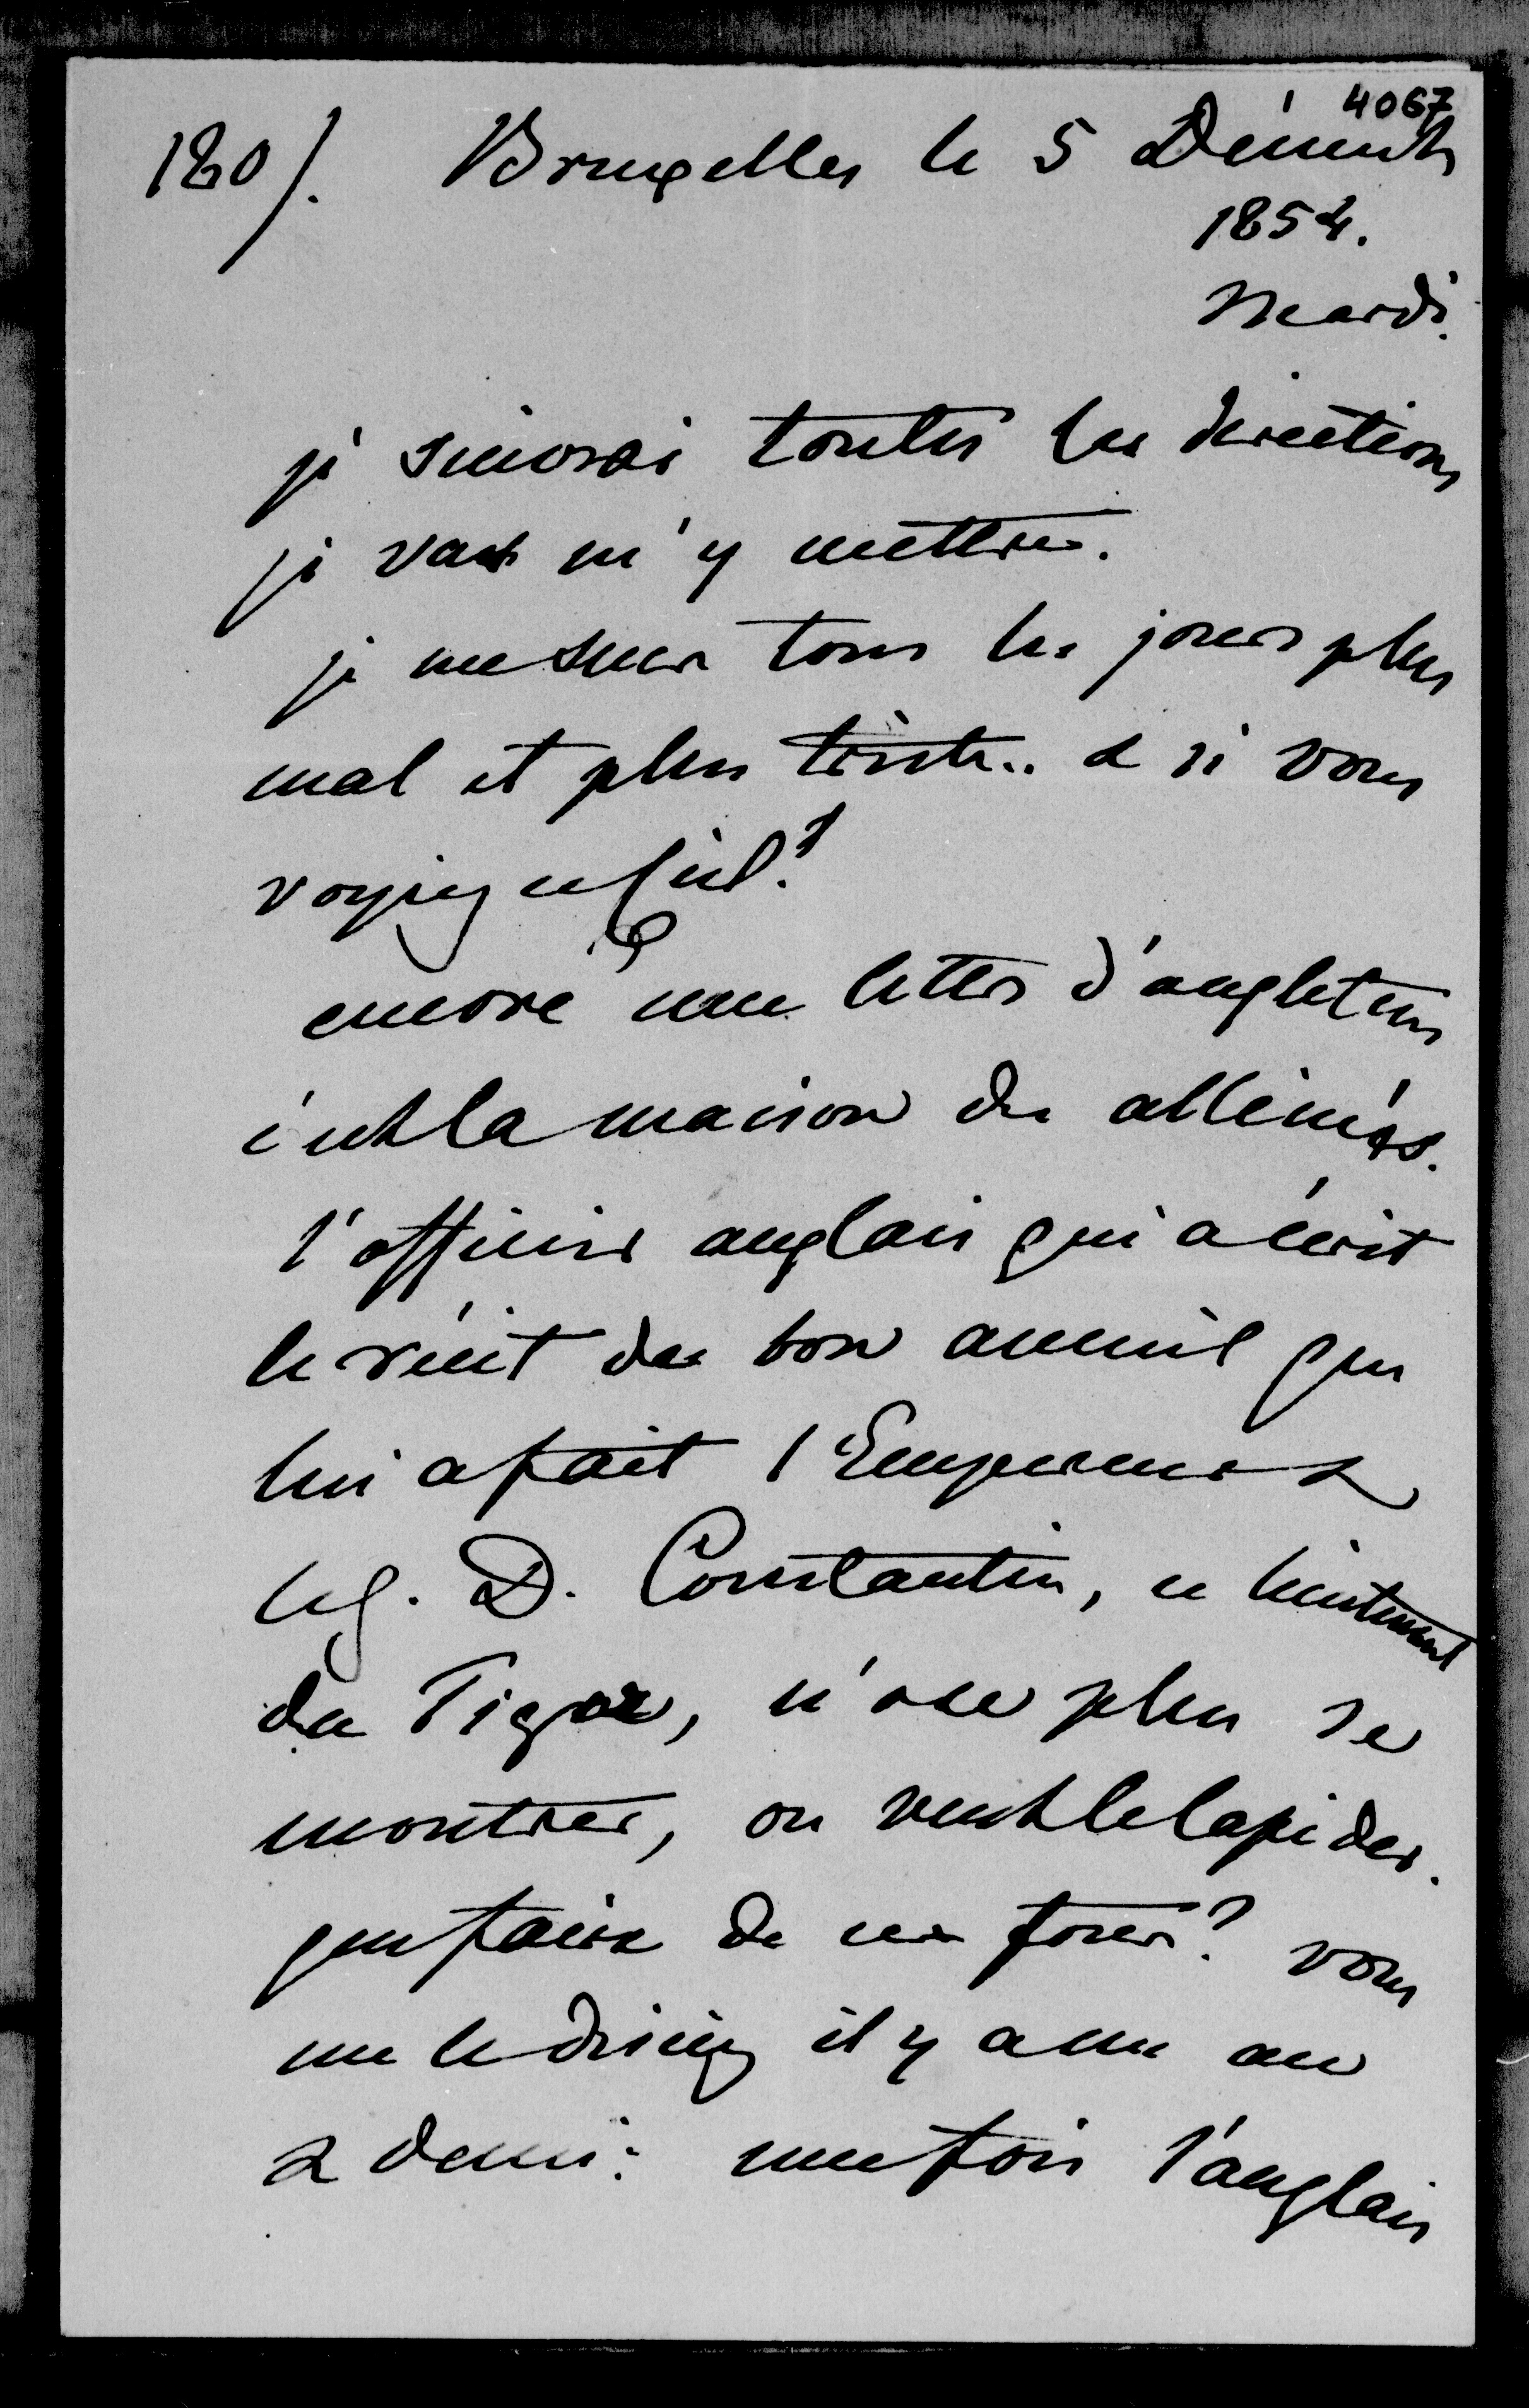 4067
180/. Bruxelles le 5 Décemb
1854.
Mardi.
je suivrai toutes les directions
je vais m'y mettre.
je me sens tous les jours plus
mal et plus triste.. & si vous
voyiez ce Ciel!
encore une lettre d'angleterre
c'est la maison des alliénés.
l'officier anglais qui a écrit
le récit du bon accueil que
lui a fait l'Empereur &
le g. D. Constantin, ce lieutenant
du Tigre, n'ose plus se
montrer, on veut le lapider.
que faire de ces fous? vous
me le disiez il y a un an
& demi: une fois l'anglais